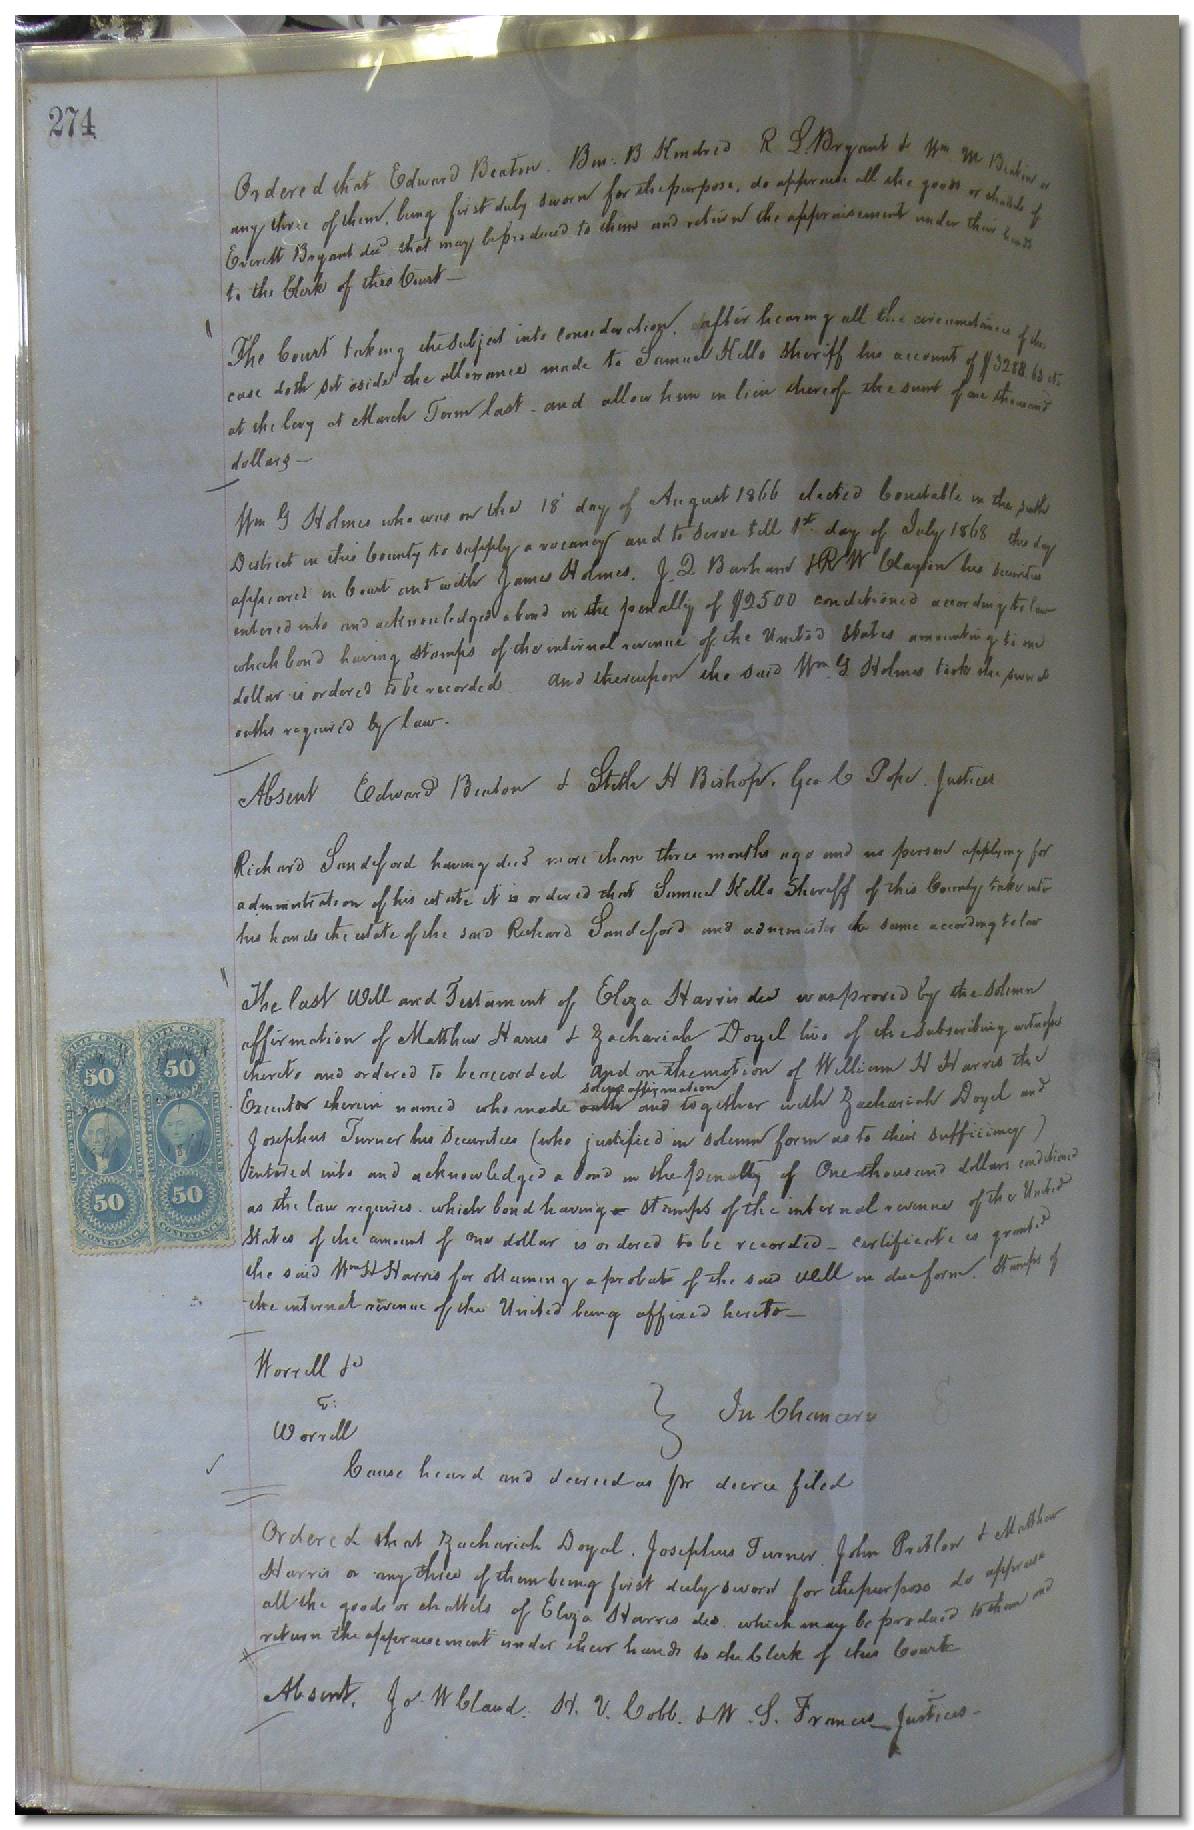 274
Ordered that Edward Beaton. Ben: B Kindred R L. Bryant & Wm M Beaton or
any three of them, being first duly sworn for the purpose, do appraise all the goods or chattels of
Everett Bryant decd that may be produced to them and return the appraisement under their hands
to the Clerk of this Court—
The Court taking the subject into consideration, after hearing all the circumstances of the
case doth set aside the allowance made to Samuel Kello Sheriff his account of $3288.63 cts
at the levy at March Term last - and allow him in lieu thereof the sum of one thousand
dollars—
Wm G Holmes who was on the 18 day of August 1866 elected Constable in the
District in this County to supply a vacancy and to serve till 1st day of July 1868 this day
appeared in Court and with James Holmes, J. D Barham & R W Clayton his securities
entered into and acknowledged a bond in the penalty of $2500 conditioned according to law
which bond having stamps of the internal revenue of the United States amounting to one
dollar is ordered to be recorded and thereupon the said Wm G Holmes took the several
oaths required by law.
Absent Edward Beaton & Stith H Bishop. Geo C Pope. Justices
Richard Sandeford having died more than three months ago and no person applying for
administration of his estate it is ordered that Samuel Kello Sheriff of this County take into
his hands the estate of the said Richard Sandeford and administer the same according to law
The last Will and Testament of Eliza Harris decd was proved by the solemn
affirmation of Matthew Harris & Zachariah Doyel two of the subscribing witnesses
thereto and ordered to be recorded and on the motion of William H Harris the
solemn affirmation
Executor therein named who made oath and together with Zachariah Doyel and
Josephus Turner his securities (who justified in solemn form as to their sufficiency)
entered into and acknowledged a bond in the penalty of One thousand dollars conditioned
as the law requires. which bond having stamps of the internal revenue of the United
States of the amount of one dollar is ordered to be recorded - certificate is granted
the said Wm H Harris for obtaining a probate of the said Will in due form. Stamps of
the internal revenue of the United being affixed hereto—
50 50
50 50
Worrell &c
v:
Worrell
} In Chancery
Cause heard and decreed as pr decree filed
Ordered that Zachariah Doyel. Josephus Turner. John Pretlow & Matthew
Harris or any three of them being first duly sworn for the purpose do appraise
all the goods or chattels of Eliza Harris decd. which may be produced to them and
return the appraisement under their hands to the Clerk of this Court
Absent. Jo W Claud. H. V. Cobb. & W. S. Francis Justices—